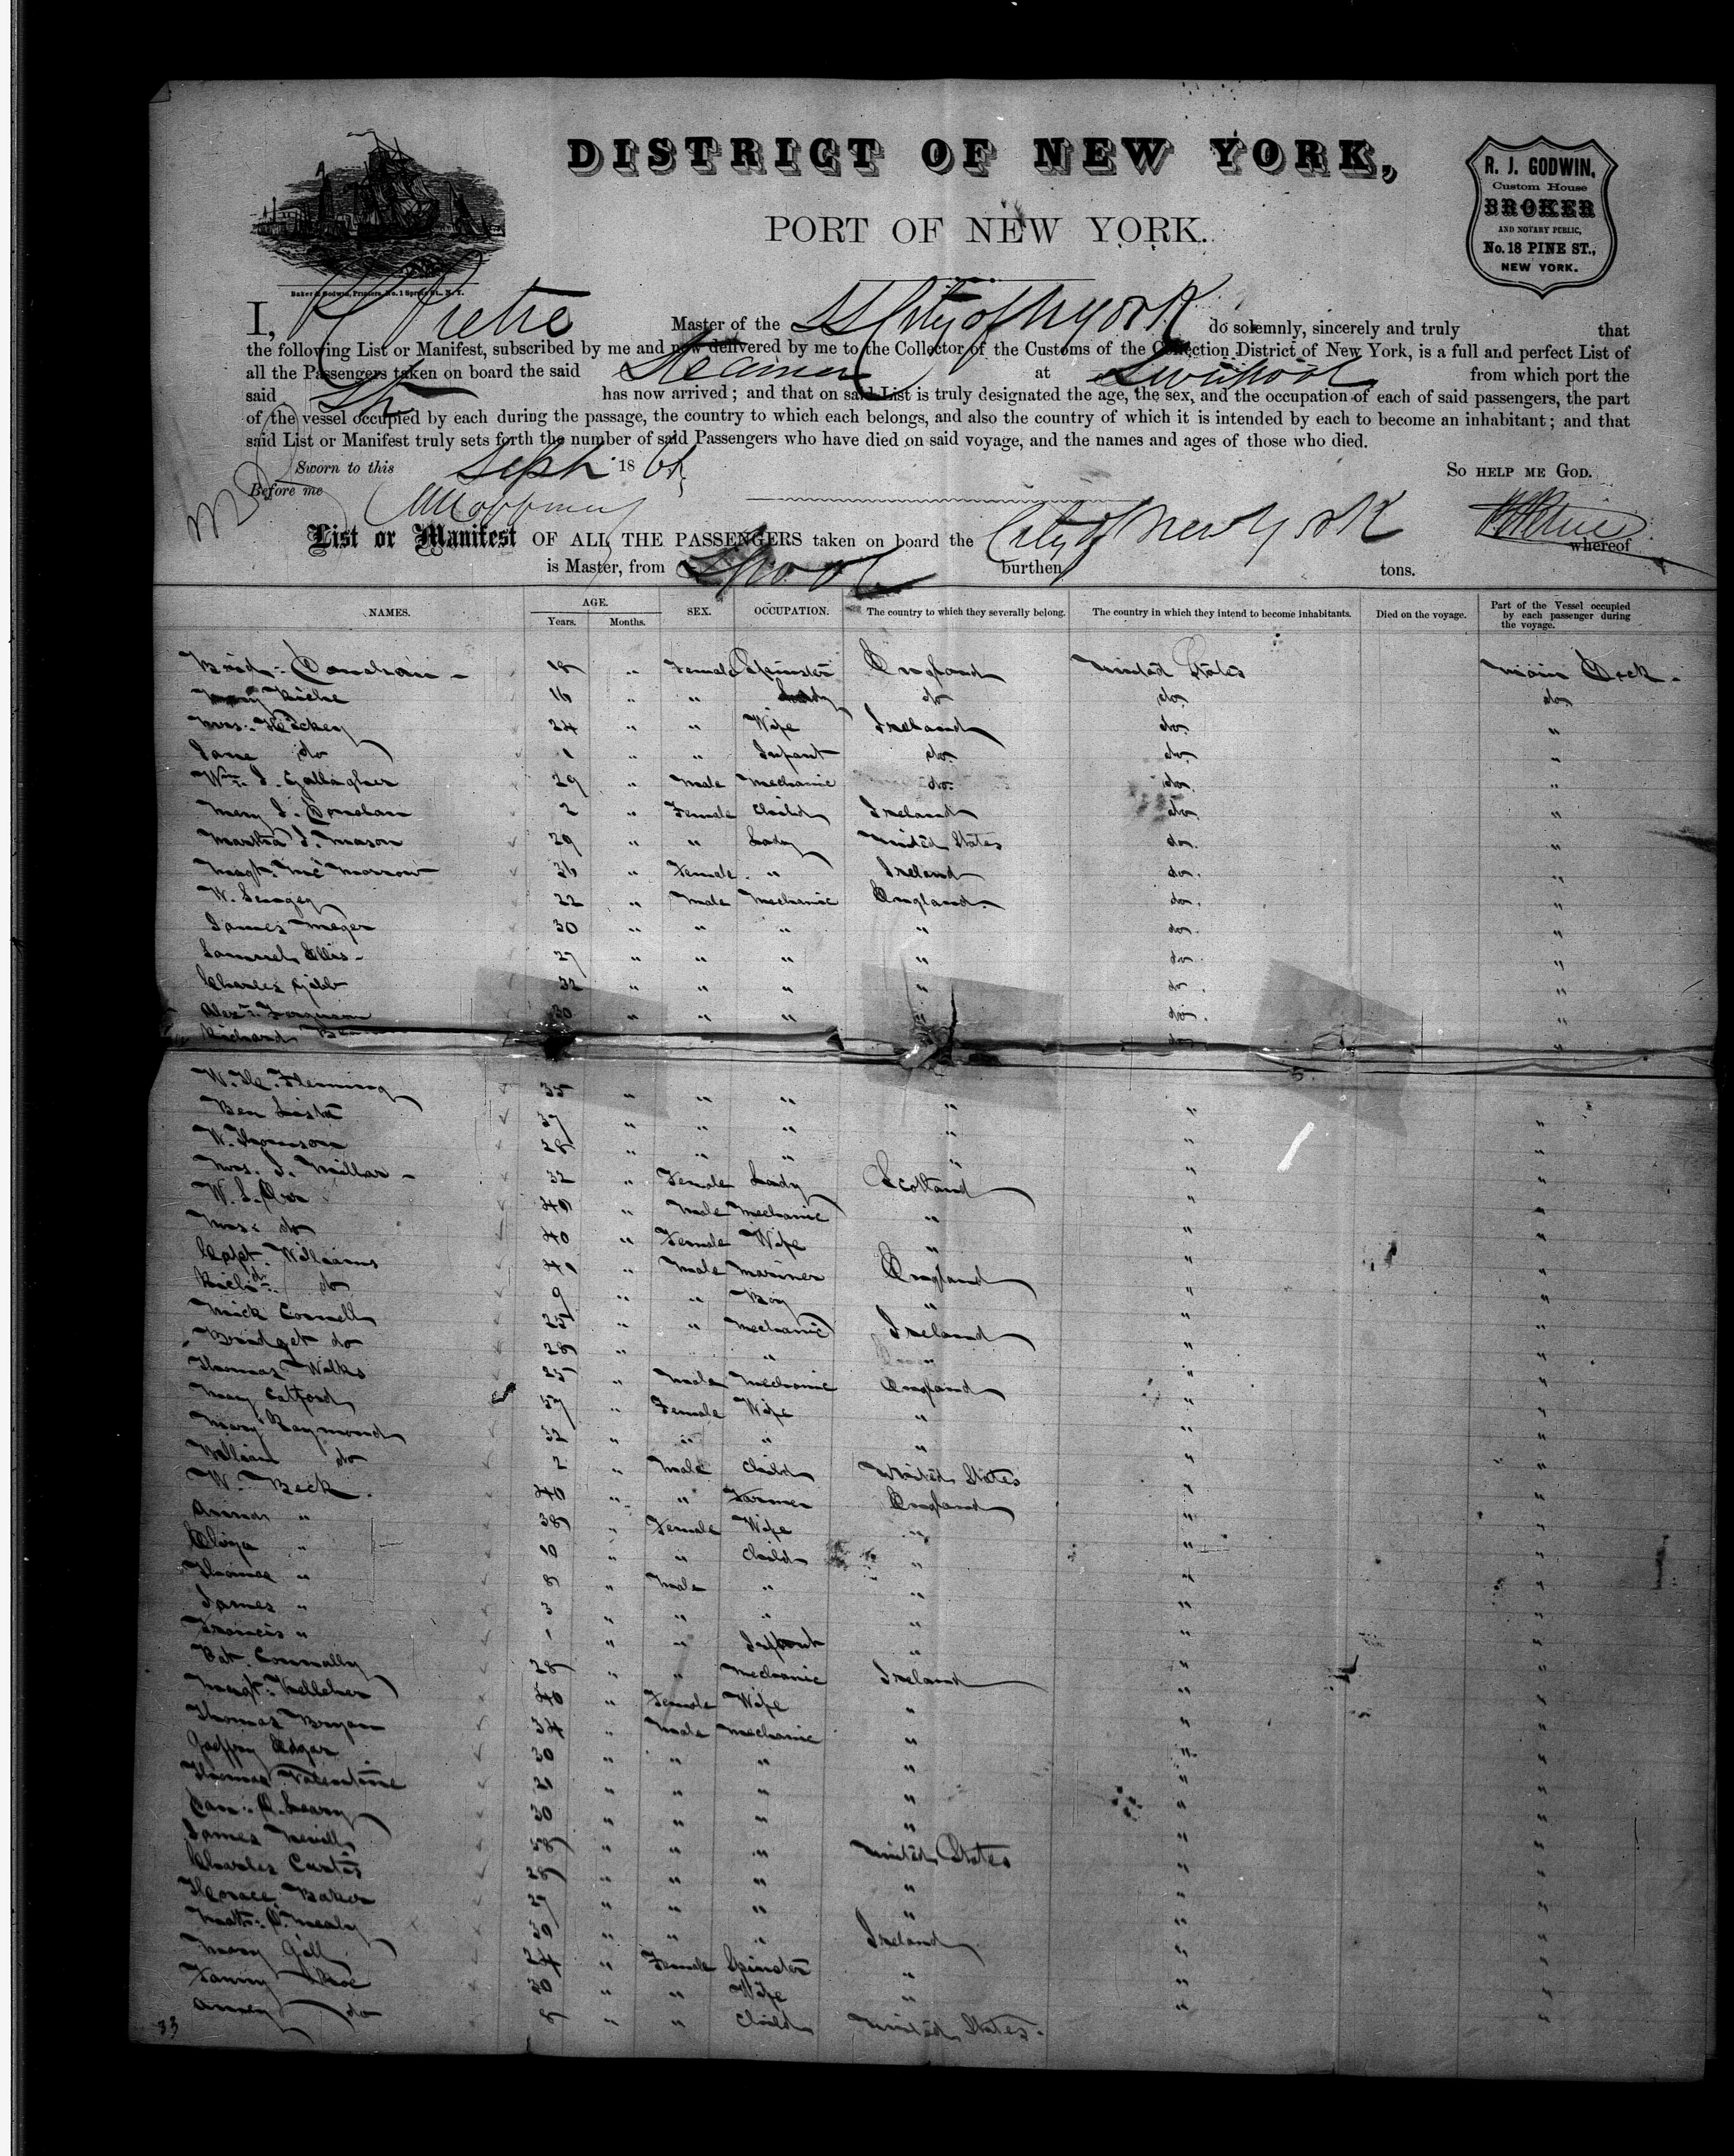 DISTRICT OF NEW YORK,
PORT OF NEW YORK.
R. J. GODWIN,
Custom House
BROKER
AND NOTARY PUBLIC,
No. 18 PINE ST.,
NEW YORK.
Baker & Godwin, Printers, No. 1 Spruce St., N. Y.
I, Petrie Master of the SS City of N York do solemnly, sincerely and truly that
the following List or Manifest, subscribed by me and now delivered by me to the Collector of the Customs of the Collection District of New York, is a full and perfect List of
all the Passengers taken on board the said Steamer at Liverpool from which port the
said has now arrived; and that on said List is truly designated the age, the sex, and the occupation of each of said passengers, the part
of the vessel occupied by each during the passage, the country to which each belongs, and also the country of which it is intended by each to become an inhabitant; and that
said List or Manifest truly sets forth the number of said Passengers who have died on said voyage, and the names and ages of those who died.
Sworn to this Sept 186 SO HELP ME GOD.
Before me
List or Manifest OF ALL THE PASSENGERS taken on board the City of New York whereof
is Master, from Lpool burthen tons.
NAMES. AGE. Years. Months. SEX. OCCUPATION. The country to which they severally belong. The country in which they intend to become inhabitants. Died on the voyage. Part of the Vessel occupied by each passenger during the voyage.
18 " Female Spinster England United States Main Deck.
16 " " Lady do do. do
Mrs: Hickey 24 " " Wife Ireland do. "
Jane do 1 " " Infant do. do. "
Wm. J. Gallagher 29 " Male Mechanic do. do. "
Mary J. Donelan 2 " Female Child Ireland do. "
Martha J. Mason 29 " " Lady United States do. "
Magt: McMorrow 36 " Female " Ireland do. "
W. 22 " Male Mechanic England do. "
James Meger 30 " " " " do. "
Samuel Ellis 27 " " " " do. "
Charles Gibb 32 " " " " do. "
Alexr. Ferguson 30 " " " " do. "
Richard do "
W. H. Fleming 35 " " " " " "
Ben Lister 37 " " " " " "
W. Thomson 28 " " " " " "
Mrs. J. Millar 32 " Female Lady Scotland " "
W. L. Orr 40 " Male Mechanic " " "
Mrs: do 40 " Female Wife " " "
Capt. Williams 40 " Male Mariner England " "
Richd. do 9 " " Boy " " "
Mick Connell 25 " " Mechanic Ireland " "
Bridget do 28 " " " " "
Thomas Walks 25 " Male Mechanic England " "
Mary Catford 57 " Female Wife " " "
Mary Raymond 32 " " " " " "
William do 2 " Male Child United States " "
W. Beck. 40 " " Farmer England " "
Anna " 38 " Female Wife " " "
Eliza " 10 " " Child " " "
Thomas " 8 " Male " " " "
James " 3 " " " " " "
Francis " 1 " " Infant " " "
Pat. Connally 28 " " Mechanic Ireland " "
Magt: Kelleher 40 " Female Wife " " "
Thomas Bryan 34 " Male Mechanic " " "
Geoffry Edgar 30 " " " " " "
Thomas Valentine 21 " " " " " "
Dan: O. Leary 30 " " " " " "
James Nevill 58 " " " United States " "
Charles Curtis 28 " " " " " "
Horace Baker 27 " " " " " "
Matt: O. Mealy 30 " " " Ireland " "
Mary Gill 24 " Female Spinster " " "
Fanny 30 " " Wife " " "
do 8 " " Child United States. "
33